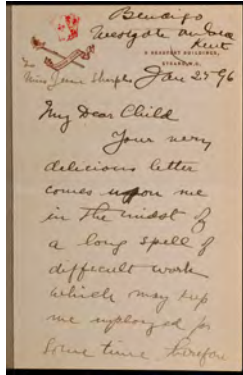 Bendigo
Westgate on Sea
Kent
STRAND, W.C.
To
Miss Sharples Jan 25 96
My Dear Child
Your very
delicious letter
comes upon me
in the midst of
a long spell of
difficult work
which may keep
me employed for
some time therefore